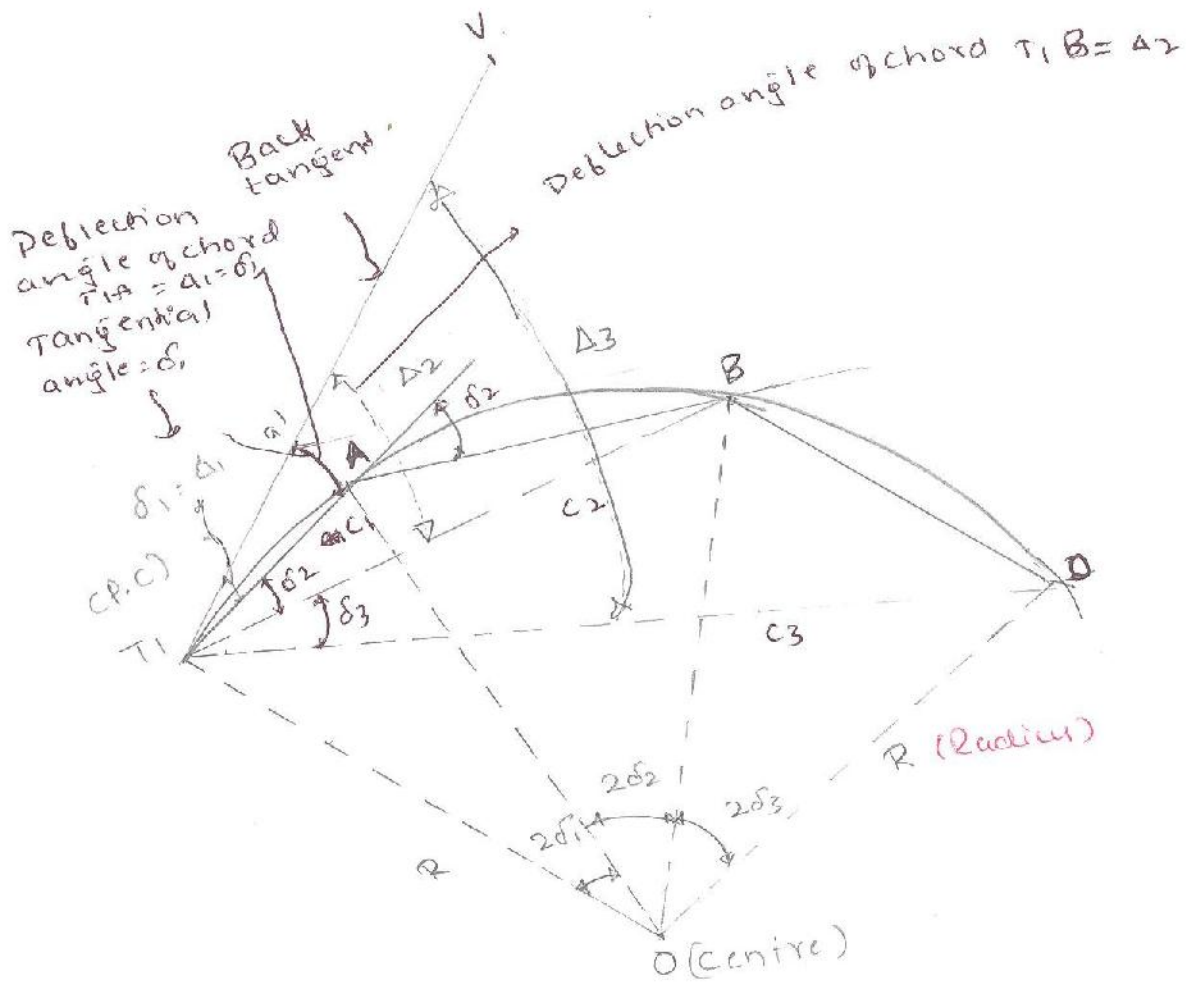 V
Deflection angle of chord T1 B = Δ2
Back
tangent
Deflection
angle of chord
T1A = Δ1 = δ1
Tangential
angle = δ1
Δ3
Δ2
B
δ2
a'
A
δ1 = Δ1
C1
C2
(P.C)
δ2
δ3
D
T1
C3
R (Radius)
2δ2
2δ3
2δ1
R
O (Centre)